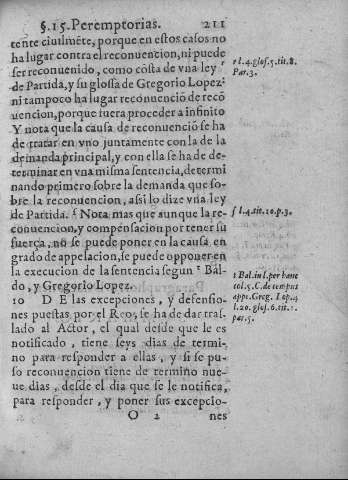 §.15. Peremptorias. 211
tente ciuilmẽte, porque en estos casos no
ha lugar contra el reconuencion, ni puede
ser reconuenido, como cõsta de vna ley ʳ
de Partida, y su glossa de Gregorio Lopez:
ni tampoco ha lugar reconuenciõ de recõ
uencion, porque fuera proceder a infinito
Y nota que la causa de reconuenciõ se ha
de tratar en vno juntamente con la de la
demanda principal, y con ella se ha de de-
terminar en vna misma sentencia, determi
nando primero sobre la demanda que so-
bre la reconuencion, assi lo dize vna ley
de Partida. ſ Nota mas que aunque la re-
conuencion, y compensacion por tener su
fuerça, no se puede poner en la causa en
grado de appelacion, se puede opponer en
la execucion de la sentencia segun ᵗ Bal-
do, y Gregorio Lopez.
10 DE las excepciones, y defensio-
nes puestas por el Reo, se ha de dar tras-
lado al Actor, el qual desde que le es
notificado, tiene seys dias de termi-
no para responder a ellas, y si se pu-
so reconuencion tiene de termino nue-
ue dias, desde el dia que se le notifica,
para responder, y poner sus excepcio-
O 2 nes
r l.4. glos.5. tit.8.
Par.3.
ſ l.4. tit.10. p.3.
t Bal. in l. per hanc
col.5. C. de tempor
appe. Greg. l op. 4
l.20. glos.6. tit.
par.5.